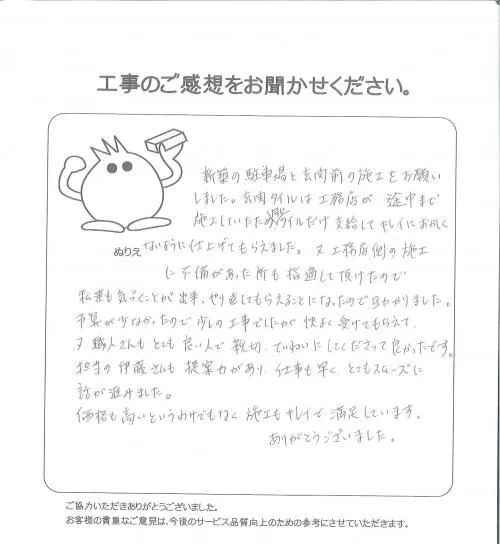 工事のご感想をお聞かせください。
新築の駐車場と玄関前の施工をお願い
しました。玄関タイルは工務店が 途中まで
施工していたためタイルだけ支給してキレイにおかしく
ぬりえ
ないように仕上げてもらえました。又工務店側の施工
に不備があった所も指摘して頂けたので
私達も気づくことが出来、やり直してもらえることになったので助かりました。
予算が少なかったので少しの工事でしたが快よく受けてもらえて
又職人さんもとても良い人で親切、ていねいにしてくださって良かったです。
担当の伊藤さんも提案力があり、仕事も早く、とてもスムーズに
話が進みました。
価格も高いというわけでもなく施工もキレイで満足しています。
ありがとうございました。
ご協力いただきありがとうございました。
お客様の貴重なご意見は、今後のサービス品質向上のための参考にさせていただきます。